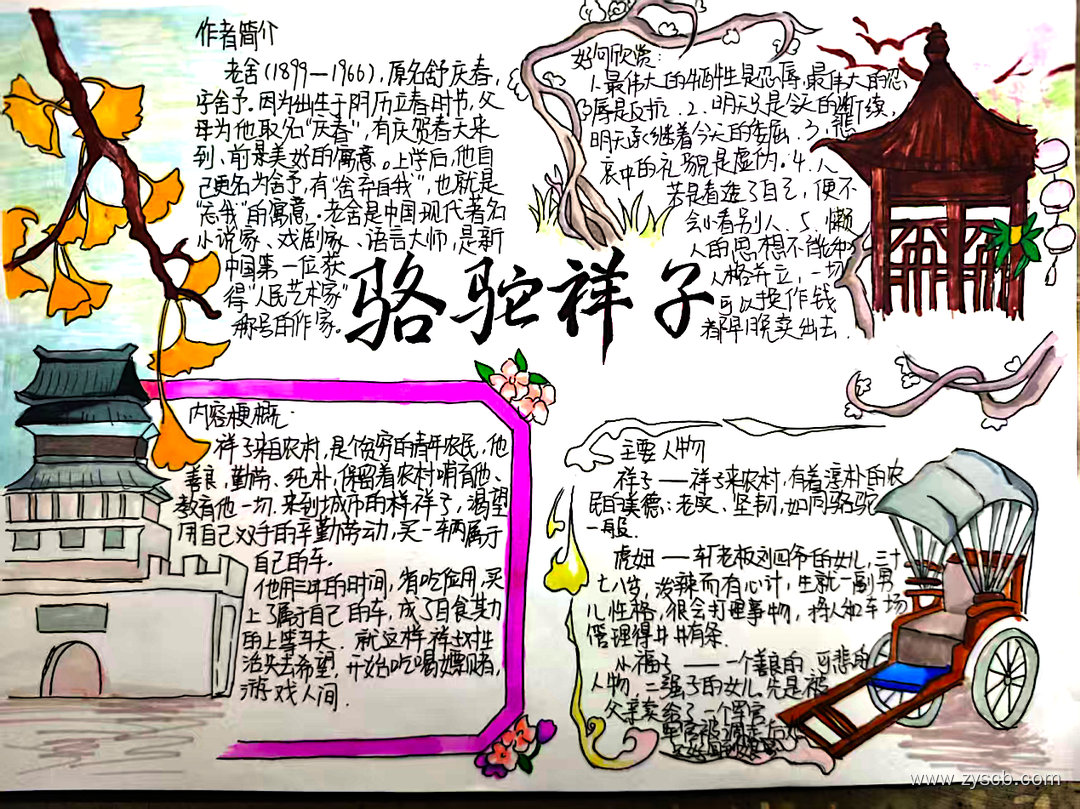 作者简介
老舍(1899—1966),原名舒庆春,
字舍予。因为出生于阴历立春时节,父
母为他取名"庆春",有庆贺春天来
到、前景美好的寓意。上学后,他自
己更名为舍予,有"舍弃自我",也就是
"忘我"的寓意。老舍是中国现代著名
小说家、戏剧家、语言大师,是新
中国第一位获
得"人民艺术家"
称号的作家。
好句欣赏:
1.最伟大的牺牲是忍辱,最伟大的忍
辱是反抗.2.明天只是今天的断续,
明天承继着今天的委屈.3.悲
哀中的礼貌是虚伪.4.人
若是看透了自己,便不
会小看别人.5.懒
人的思想不能和
人格并立,一切
可以换作钱
都早晚卖出去.
骆驼祥子
内容梗概.
祥子来自农村,是个贫穷的青年农民,他
善良,勤劳、纯朴,保留着农村哺育他、
教育他一切.来到城市的样祥子,渴望
用自己双手的辛勤劳动,买一车两属于
自己的车.
他用三年的时间,省吃俭用,买
上了属于自己的车,成了自食其力
的上等车夫.就这样祥子对生
活失去希望,开始吃喝嫖赌,
游戏人间.
主要人物
祥子——祥子来农村,有着淳朴的农
民的美德:老实、坚韧,如同骆驼
一般.
虎妞——车厂老板刘四爷的女儿,三十
七八岁,泼辣而有心计,生就一副男
儿性格,很会打理事物,将人和车场
管理得井井有条.
小福子——一个善良的、可悲的
人物,二强子的女儿,先是被
父亲卖给了一个军官
军官被调走后
www.zyscb.com